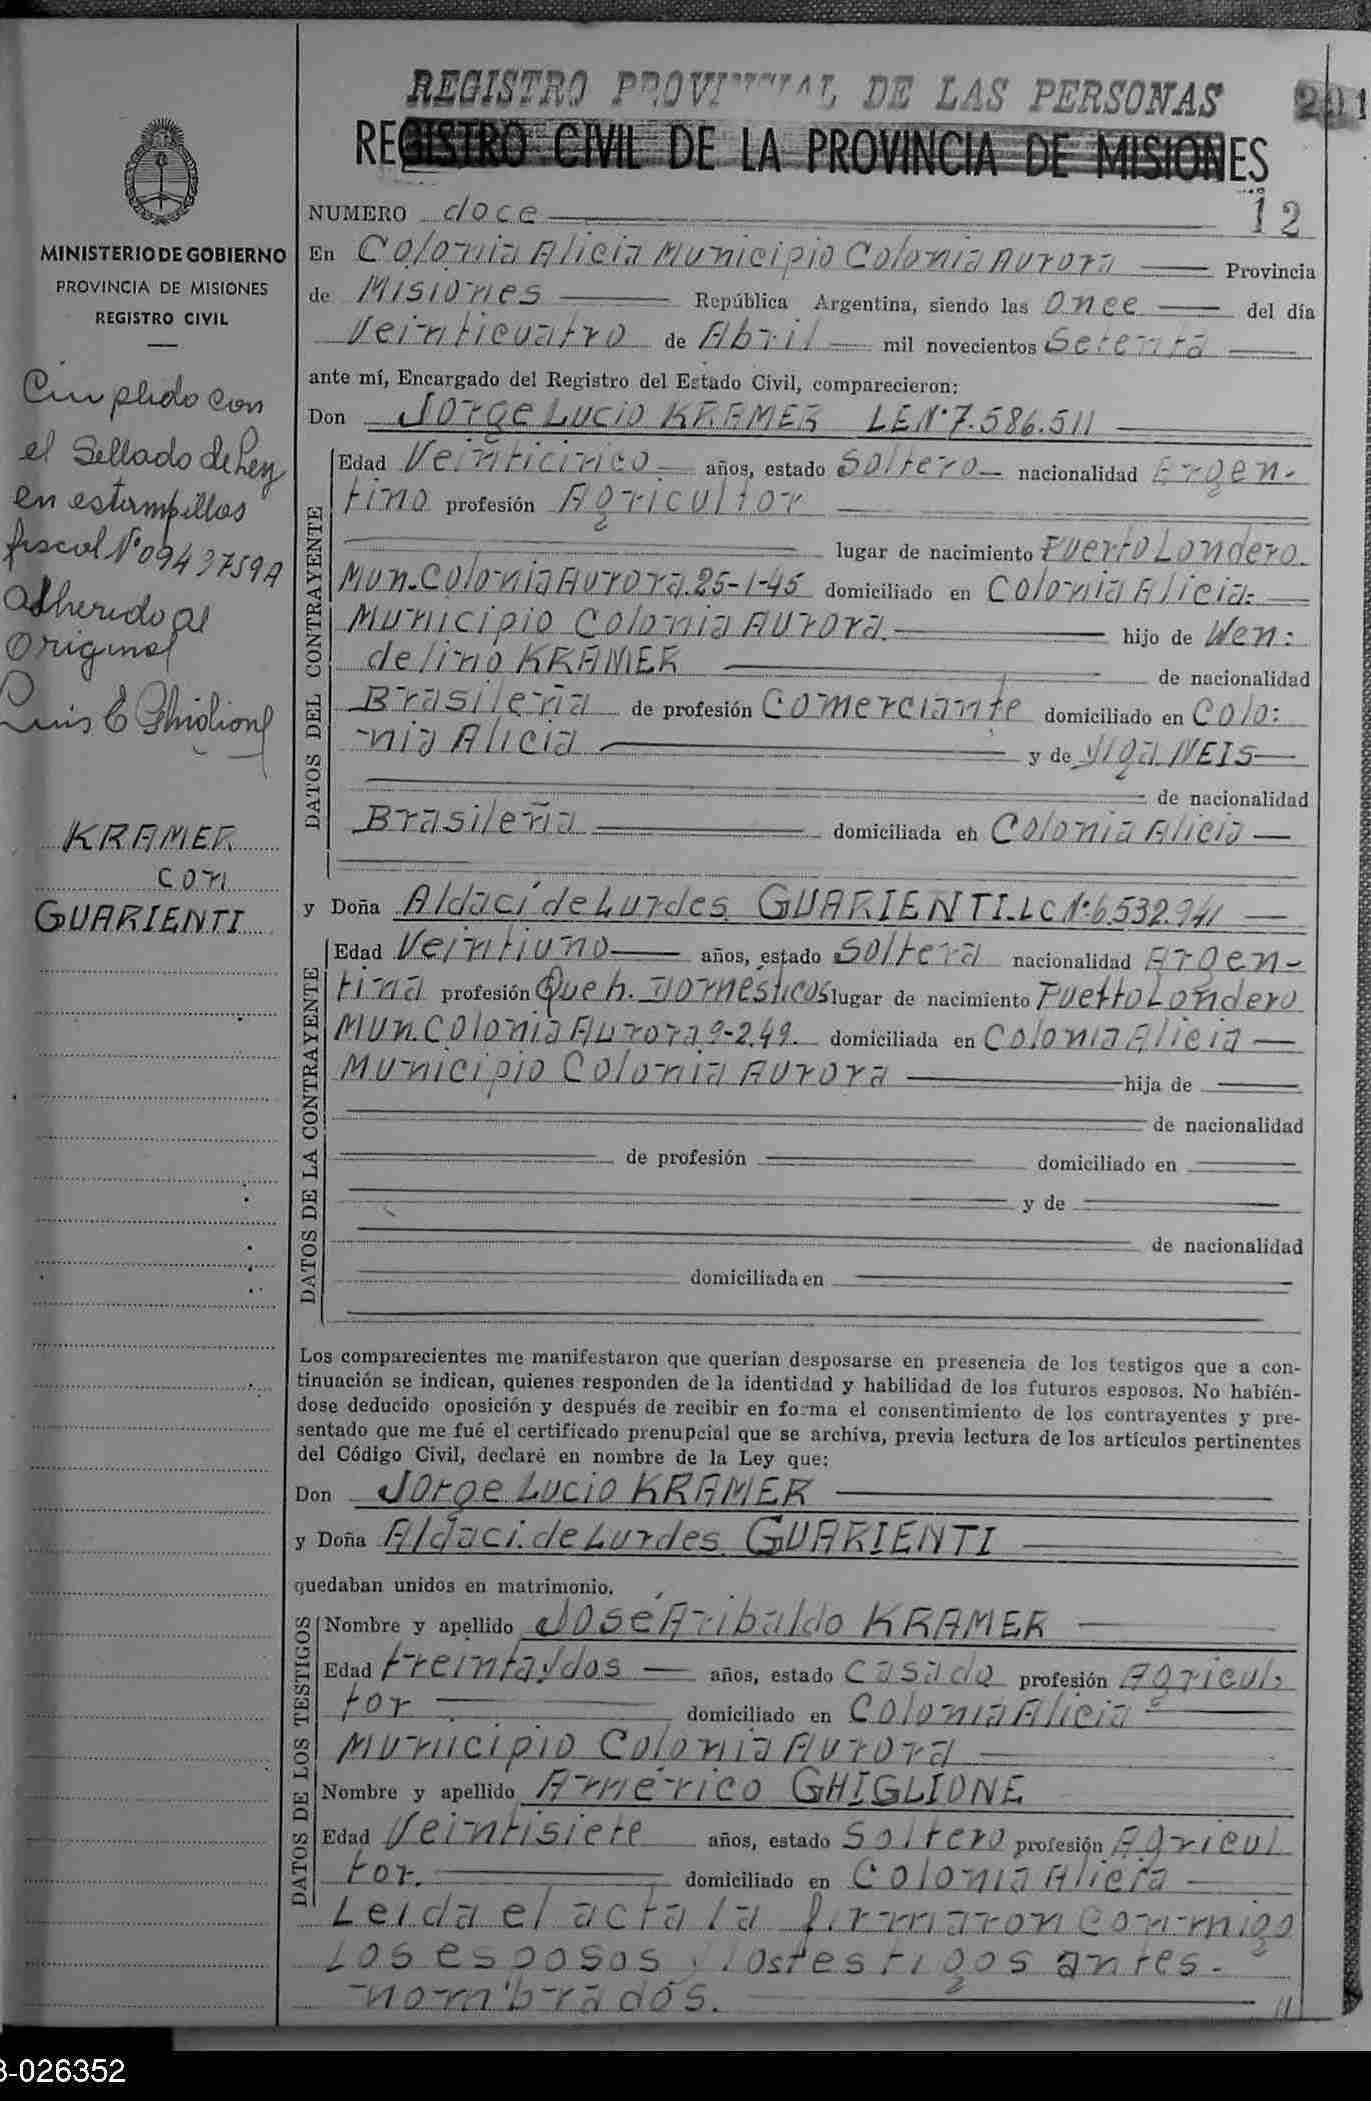 REGISTRO PROVINCIAL DE LAS PERSONAS
201
REGISTRO CIVIL DE LA PROVINCIA DE MISIONES
MINISTERIO DE GOBIERNO
PROVINCIA DE MISIONES
REGISTRO CIVIL
Cumplido con
el Sellado de Ley
en estampillas
fiscal Nº 0943759A
adherido al
Original
Luis E Ghiglione
KRAMER
con
GUARIENTI
NUMERO doce 12
En Colonia Alicia Municipio Colonia Aurora Provincia
de Misiones República Argentina, siendo las Once del día
Veinticuatro de Abril mil novecientos Setenta
ante mí, Encargado del Registro del Estado Civil, comparecieron:
Don Jorge Lucio KRAMER LE Nº 7.586.511
DATOS DEL CONTRAYENTE
Edad Veinticinco años, estado Soltero nacionalidad Argen-
tino profesión Agricultor
lugar de nacimiento Puerto Londero.
Mun. Colonia Aurora. 25-1-45 domiciliado en Colonia Alicia-
Municipio Colonia Aurora. hijo de Wen:
delino KRAMER de nacionalidad
Brasileña de profesión Comerciante domiciliado en Colo:
nia Alicia y de Ylga NEIS
de nacionalidad
Brasileña domiciliada en Colonia Alicia
y Doña Aldací de Lurdes GUARIENTI. LC Nº 6.532.941
DATOS DE LA CONTRAYENTE
Edad Veintiuno años, estado Soltera nacionalidad Argen-
tina profesión Que h. Domésticos lugar de nacimiento Puerto Londero
Mun. Colonia Aurora 9-2.49. domiciliada en Colonia Alicia
Municipio Colonia Aurora hija de
de nacionalidad
de profesión domiciliado en
y de
de nacionalidad
domiciliada en
Los comparecientes me manifestaron que querían desposarse en presencia de los testigos que a con-
tinuación se indican, quienes responden de la identidad y habilidad de los futuros esposos. No habién-
dose deducido oposición y después de recibir en forma el consentimiento de los contrayentes y pre-
sentado que me fué el certificado prenupcial que se archiva, previa lectura de los artículos pertinentes
del Código Civil, declaré en nombre de la Ley que:
Don Jorge Lucio KRAMER
y Doña Aldaci. de Lurdes GUARIENTI
quedaban unidos en matrimonio.
DATOS DE LOS TESTIGOS
Nombre y apellido José Aribaldo KRAMER
Edad treinta y dos años, estado Casado profesión Agricul-
tor domiciliado en Colonia Alicia
Municipio Colonia Aurora
Nombre y apellido Américo GHIGLIONE
Edad Veintisiete años, estado Soltero profesión Agricul
tor. domiciliado en Colonia Alicia
Leida el acta la firmaron conmigo
los esposos y los testigos antes-
nombrados. //
3-026352